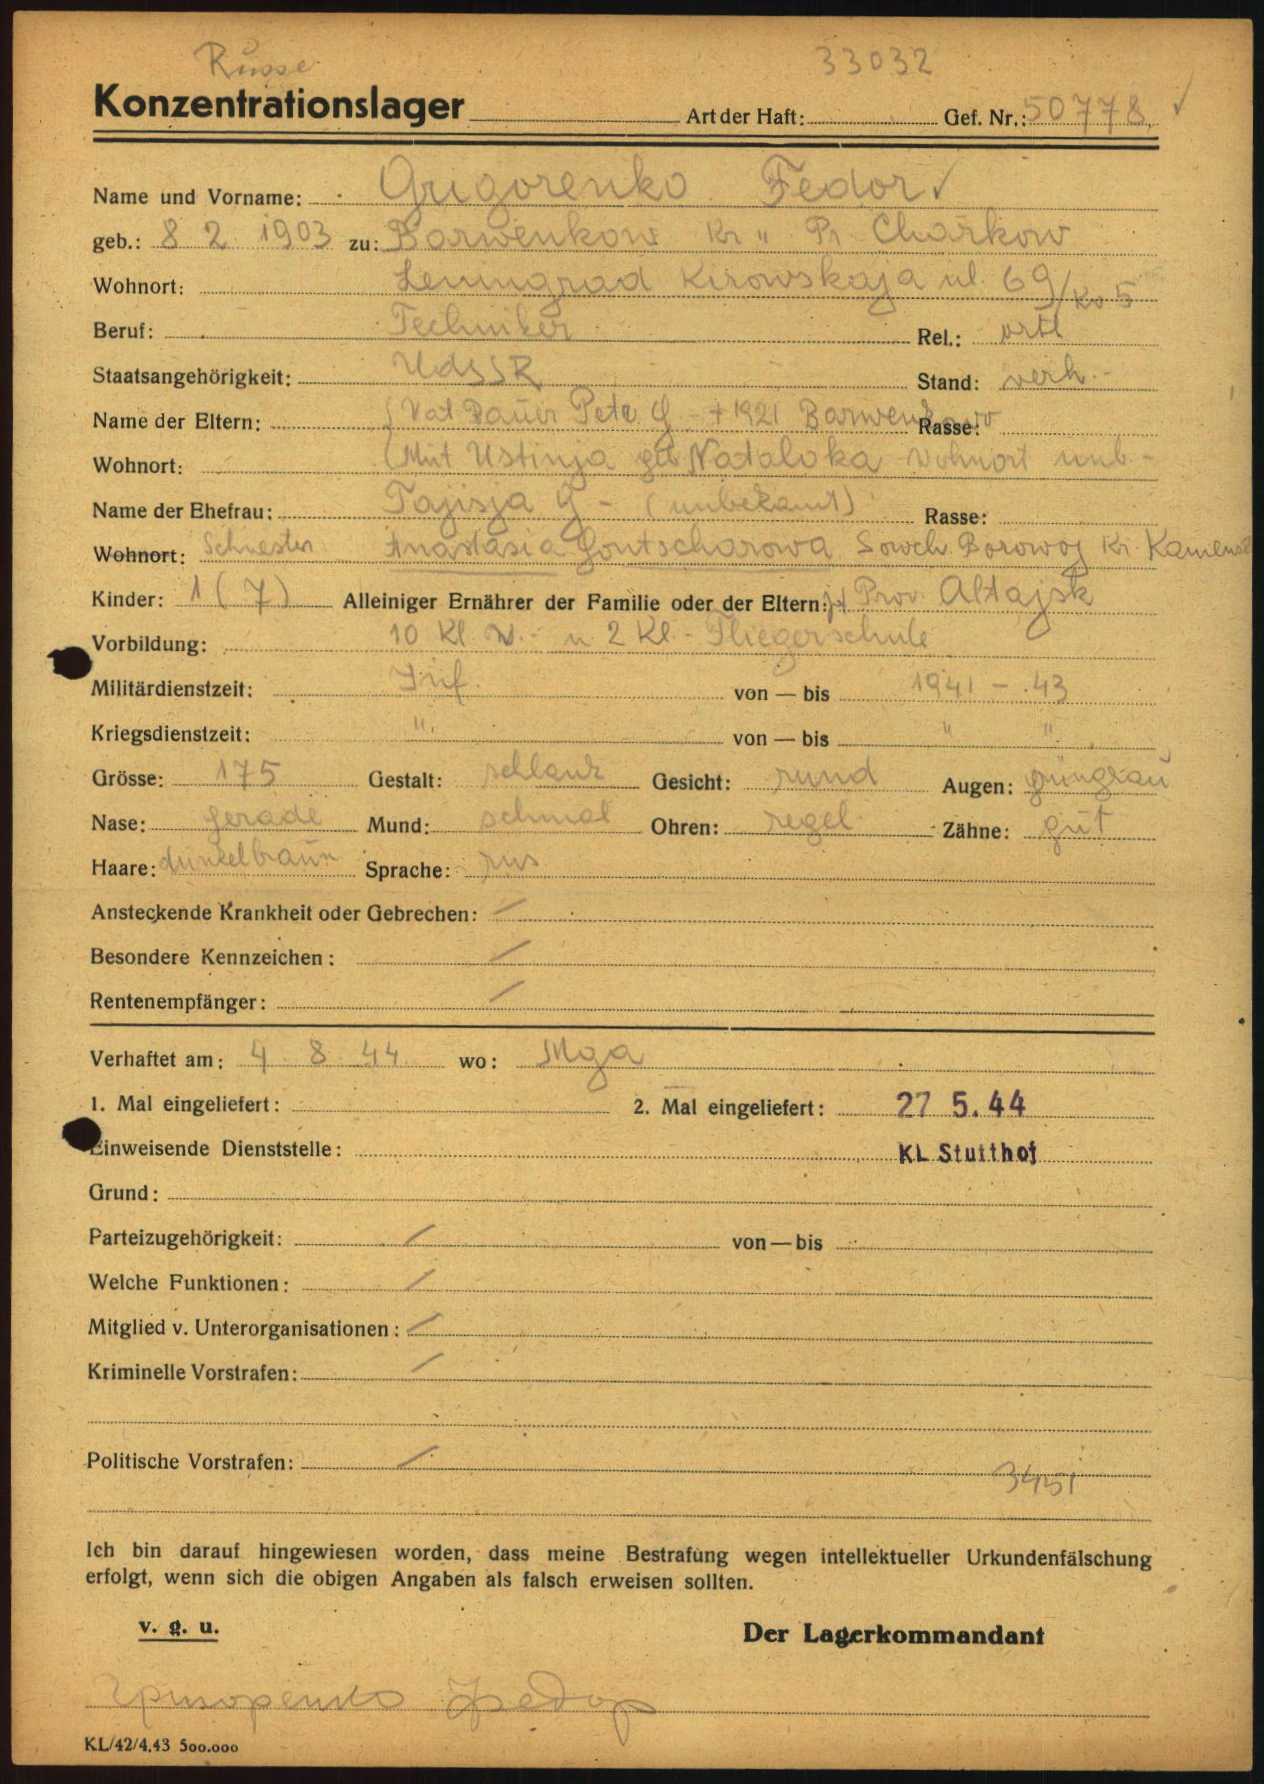 Russe 33032
Konzentrationslager Art der Haft: Gef. Nr.: 50778
Name und Vorname: Grigorenko Fedor
geb.: 8 2 1903 zu: Barwenkow Kr " Pr Charkow
Wohnort: Leningrad Kirowskaja ul. 69/Kv 5
Beruf: Techniker Rel.: ortl
Staatsangehörigkeit: UdSSR Stand: verh.-
Name der Eltern: (Vat Bauer Petr G - + 1921 Barwenkowo Rasse:
Wohnort: (Mut Ustinja geb Nataloka Wohnort unb.-
Name der Ehefrau: Tajisja G - (unbekannt) Rasse:
Wohnort: Schwester Anastasia Gontscharowa Sowch. Borowoj Kr. Kamensk
Kinder: 1 (7) Alleiniger Ernährer der Familie oder der Eltern: ja Prov. Altajsk
Vorbildung: 10 Kl. - u 2 Kl.- Fliegerschule
Militärdienstzeit: Inf. von — bis 1941 - 43
Kriegsdienstzeit: " von — bis " "
Grösse: 175 Gestalt: schlank Gesicht: rund Augen: grüngrau
Nase: gerade Mund: schmal Ohren: regel. Zähne: gut
Haare: dunkelbraun Sprache: rus
Ansteckende Krankheit oder Gebrechen: /
Besondere Kennzeichen: /
Rentenempfänger: /
Verhaftet am: 4 8 44 wo: Mga
1. Mal eingeliefert: 2. Mal eingeliefert: 27 5.44
Einweisende Dienststelle: KL Stutthof
Grund:
Parteizugehörigkeit: / von — bis
Welche Funktionen: /
Mitglied v. Unterorganisationen: /
Kriminelle Vorstrafen: /
Politische Vorstrafen: /
3451
Ich bin darauf hingewiesen worden, dass meine Bestrafung wegen intellektueller Urkundenfälschung
erfolgt, wenn sich die obigen Angaben als falsch erweisen sollten.
v. g. u. Der Lagerkommandant
Григоренко Федор
KL/42/4.43 500.000